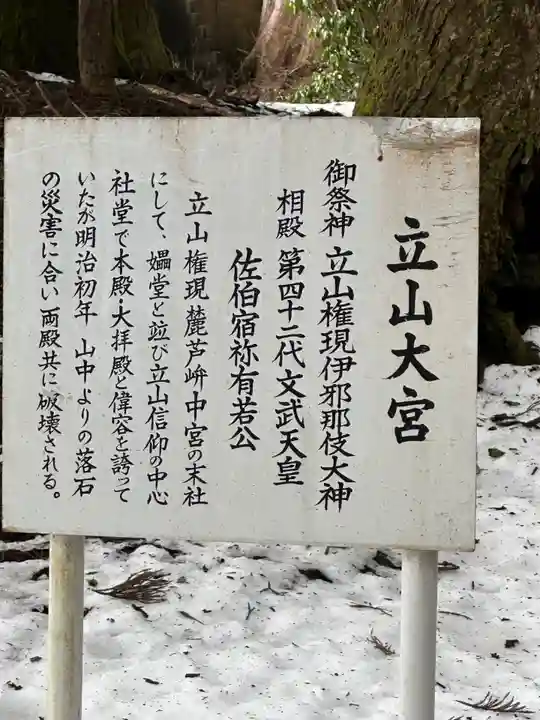 立山大宮
御祭神 立山権現伊邪那伎大神
相殿 第四十二代文武天皇
佐伯宿祢有若公
立山権現麓芦峅中宮の末社
にして、媼堂と竝び立山信仰の中心
社堂で本殿・大拝殿と偉容を誇って
いたが明治初年 山中よりの落石
の災害に合い 両殿共に破壊される。